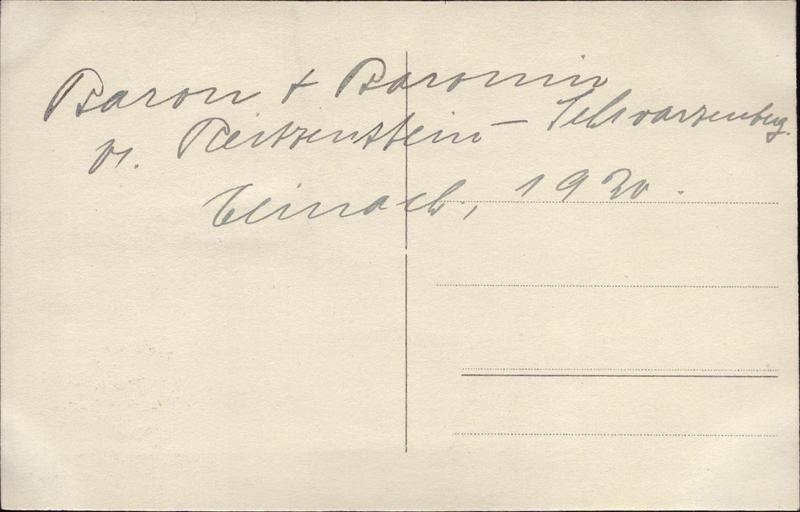 Baron + Baronin
v. Reitzenstein - Schwarzenberg.
Teinach, 1920.